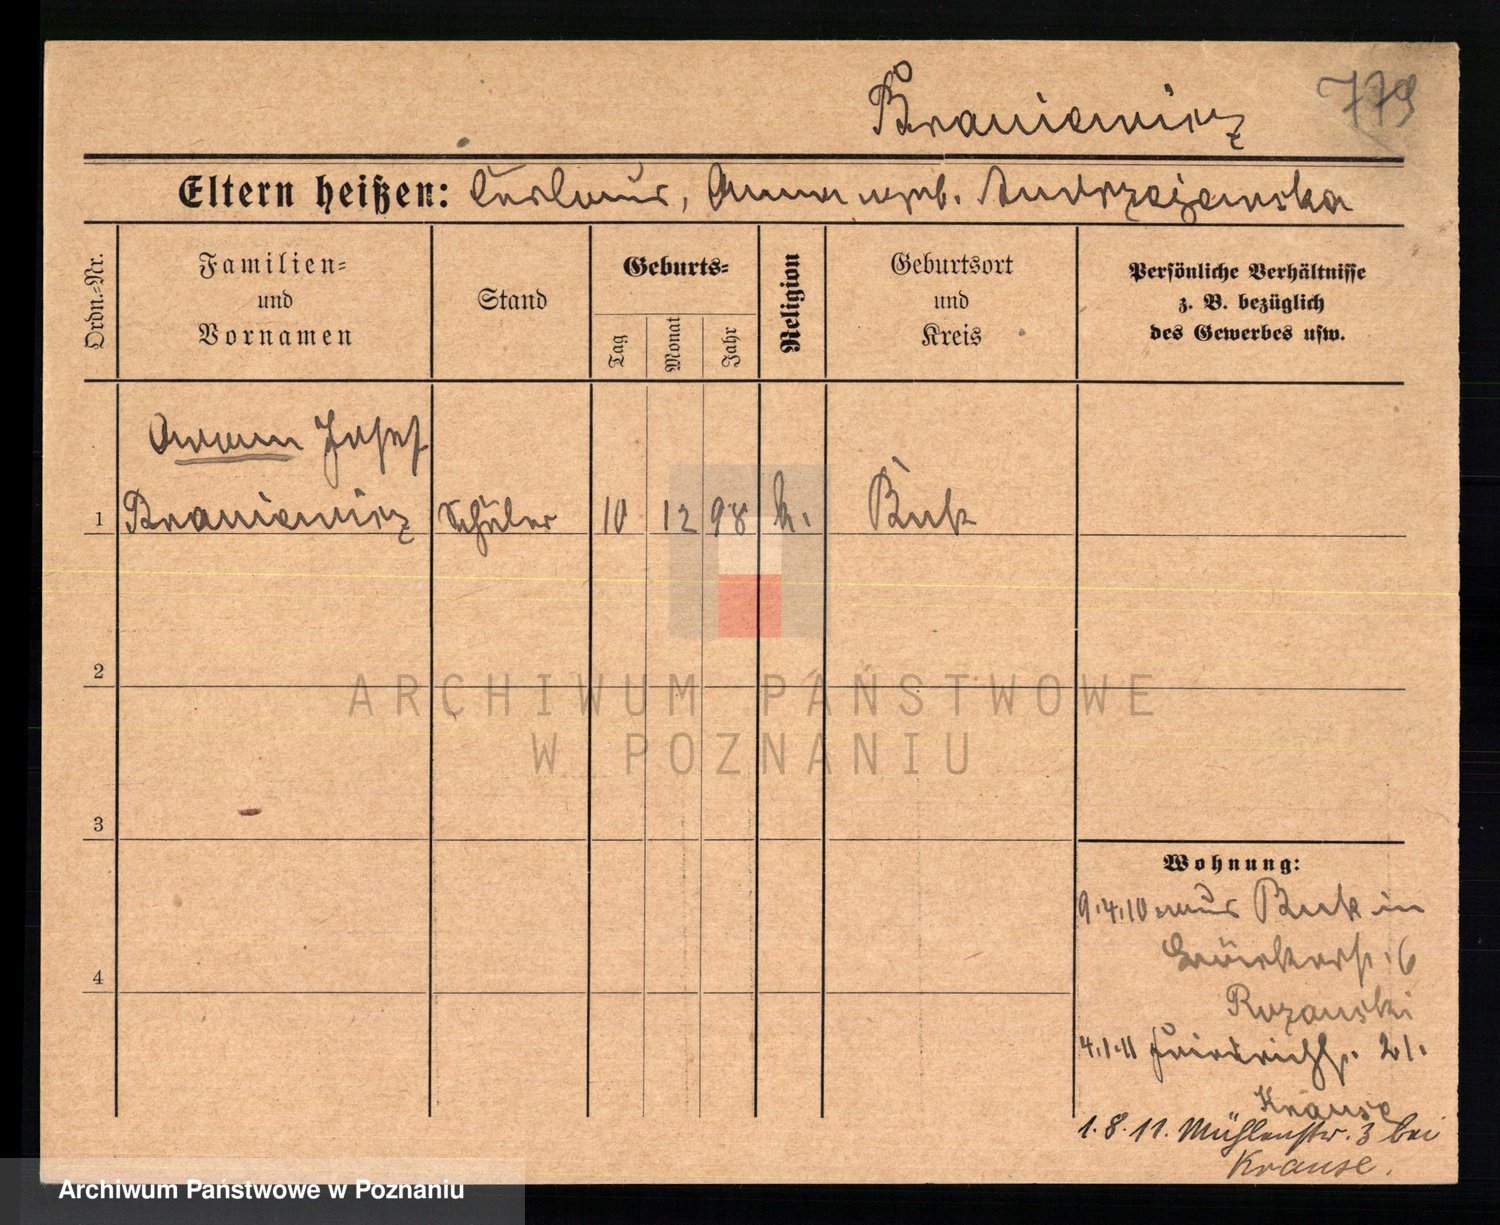 779
Braniewicz
Eltern heißen: Anna geb. Andrzejewska
Ordn.-Nr.
Familien- und Vornamen
Stand
Geburts-
Tag
Monat
Jahr
Religion
Geburtsort und Kreis
Persönliche Verhältnisse
z. B. bezüglich
des Gewerbes usw.
Josef
1 Braniewicz Schüler 10 12 98 k. Buk
2
3
4
Wohnung:
9.4.10 aus Buk in
6
Rozanski
4.1.11 Friedrichstr. 21.
Krause
1.8.11. Mühlenstr. 3 bei
Krause.
ARCHIWUM PAŃSTWOWE
W POZNANIU
Archiwum Państwowe w Poznaniu